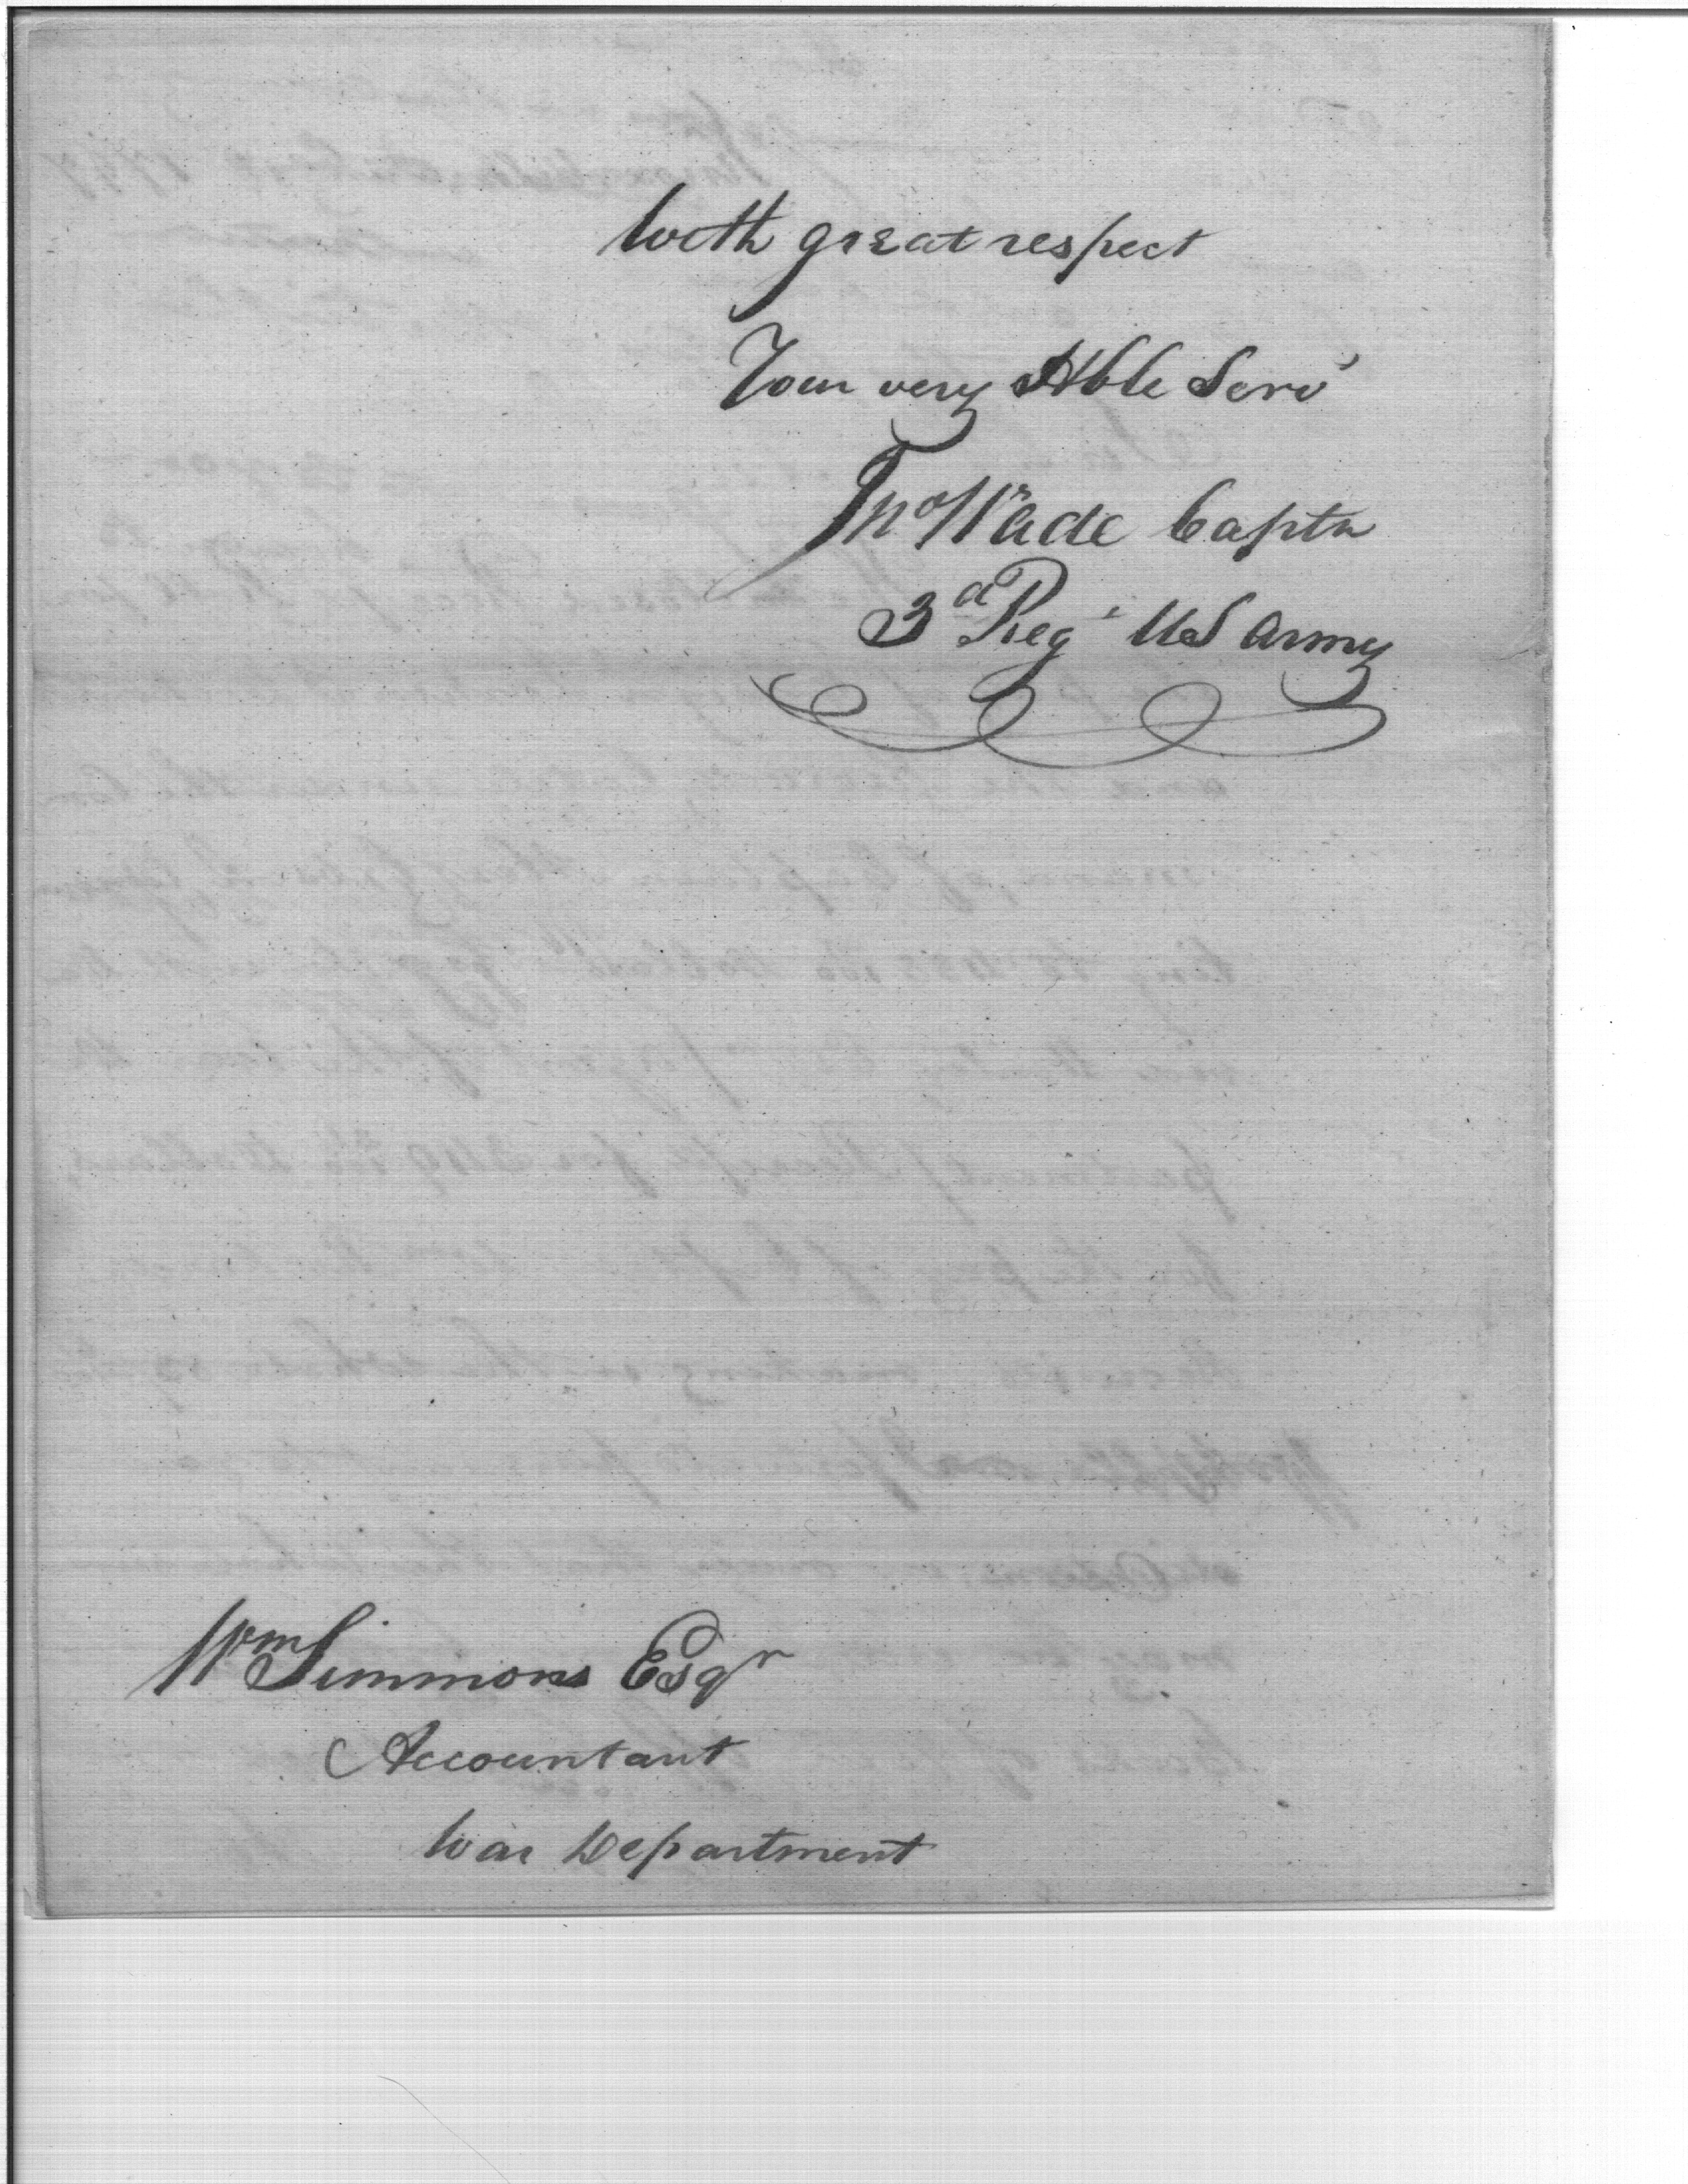 With great respect
Your very Hble Serv'
Jno Wade Captn
3d Reg' US Army
Wm Simmons Esqr
Accountant
War Department